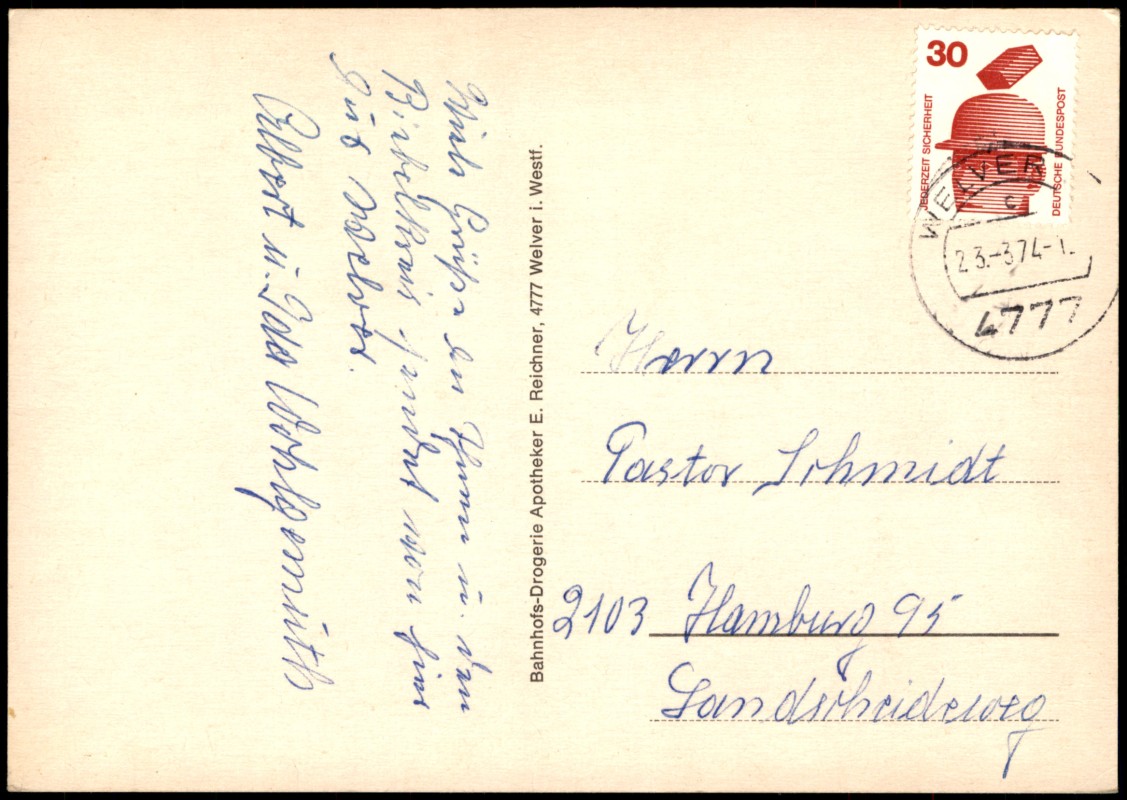 Viele Grüße an Ihnen u. den
Bibelkreis sendet von hier
aus Welver.
Albert u. Ida Wohlgemuth
Bahnhofs-Drogerie Apotheker E. Reichner, 4777 Welver i. Westf.
30
JEDERZEIT SICHERHEIT
DEUTSCHE BUNDESPOST
WELVER
c
23.-3.74-1
4777
Herrn
Pastor Schmidt
2103 Hamburg 95
Landscheideweg